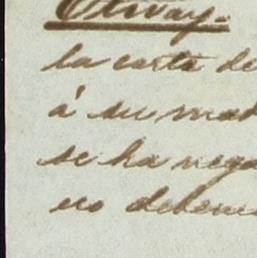 Otway.
la carta de
á su mad
se ha nega
no debem